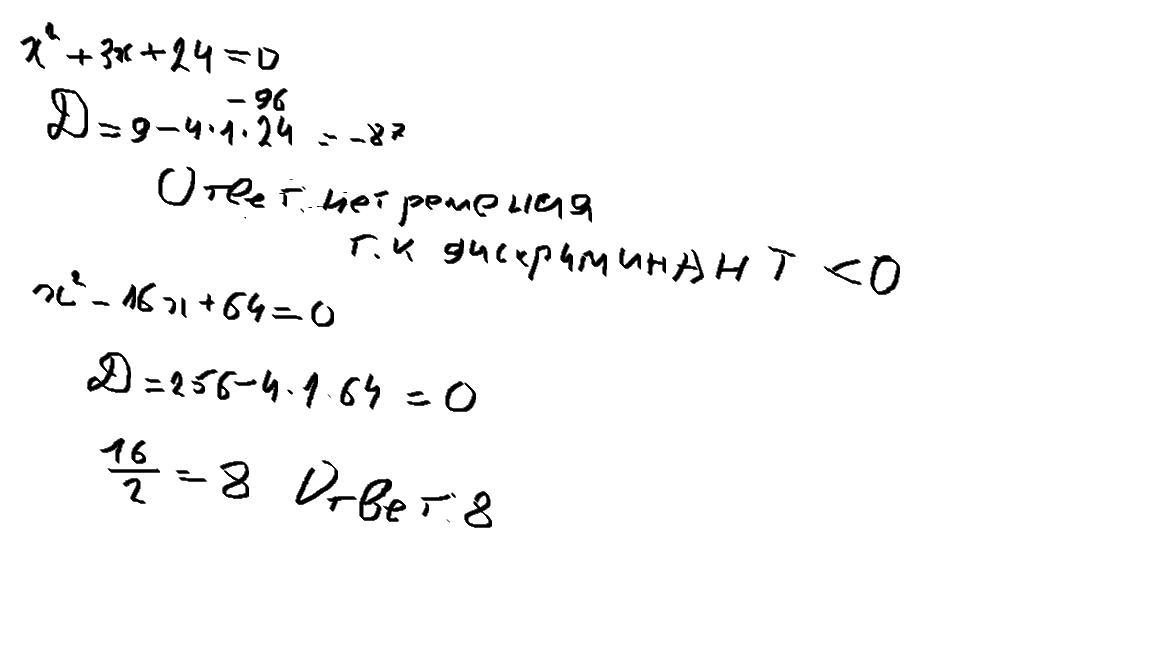 x² + 3x + 24 = 0
- 96
D = 9 - 4 · 1 · 24 = - 87
Ответ: нет решения
т.к дискриминант < 0
x² - 16x + 64 = 0
D = 256 - 4 · 1 · 64 = 0
16/2 = 8 Ответ: 8